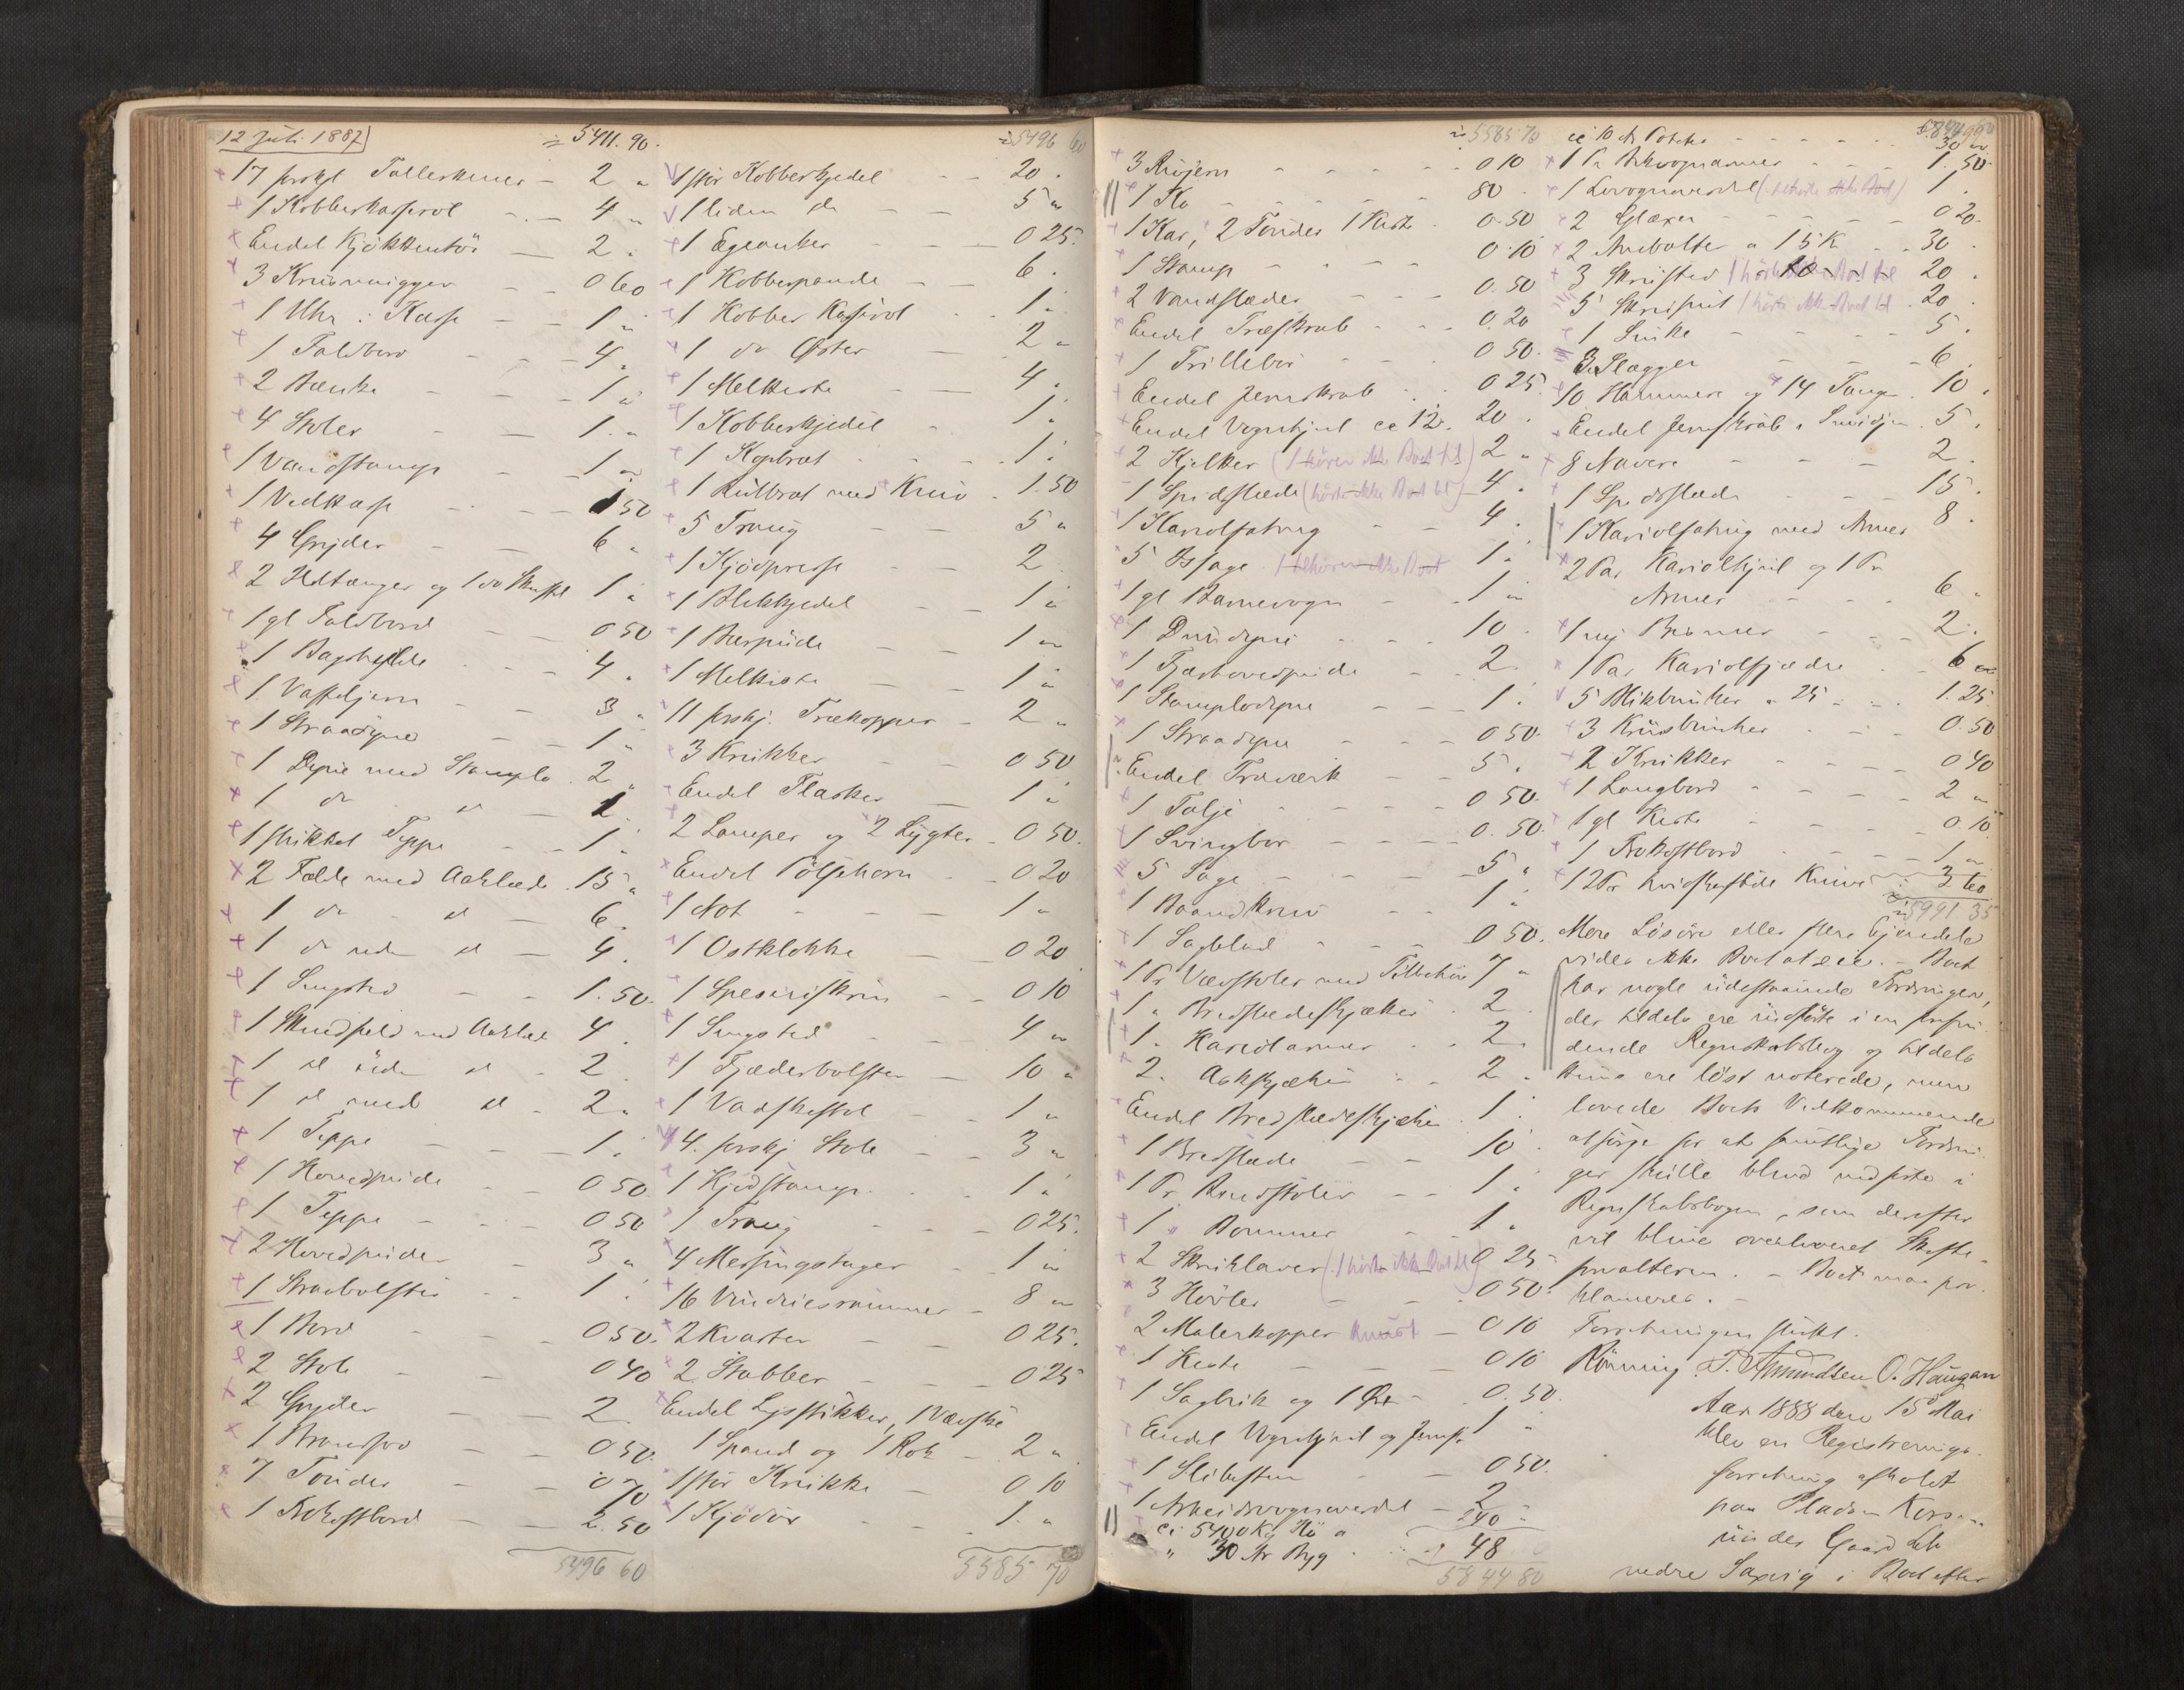 12 Juli 1887
÷ 5411. 90.
17 forskjl Tallerkener - 2 "
1 Kobberkasserol - 4 "
Endel Kjøkkentøi - 2 "
3 Krüsmugger - 0 60
1 Uhr i Kasse - 1 "
1 Foldbord - 4 "
2 Bænke - 1 "
4 Stoler - 1. "
1 Vandstamp - 1 "
1 Vedkasse - 1 50
4 Gryder - 6 "
2 Ildtænger og 1 do Skuffel 1 "
1 gl Foldbord - 0 50
1 Bagstehelle - 4 "
1 Vaffeljern - 3 "
1 Straadyne - 1 "
1 Dyne med Stamplo. 2 "
1 do - 1
1 strikket Teppe - 1 "
2 Fælde med Aaklæde. 15 "
1 do - dl - 6
1 do uden dl - 4.
1 Sengsted - 1. 50.
1 Skindfeld med Aaklæd 4.
1 dl uden dl - 2
1 dl med dl - 2 "
1 Teppe - 1 "
1 Hovedpude - 0 50
1 Teppe - 0 50
2 Hovedpuder - 3 "
1 Straabolster - 1 "
1 Bord - 0 50.
2 Stole - 0 40
2 Gryder - 2
1 Brandsov - 0 50.
7 Tønder - 0 70
1 Frokostbord - 2. 50
5496 60
÷ 5496 60
1 stor Kobberkjedel - 20.
1 liden do - 5 "
1 Egeanker - 0 25.
1 Kobberpande - 6.
1 Kobber Kasserol - 1 "
1 do Øster - 2 "
1 Melkiste - 4
1 Kobberkjedel - 1 "
1 Kopbræt - 1 "
1 Rulbræt med Kniv - 1. 50
5 Traug - 5 "
1 Kjødpresse - 2
1 Blikkjedel - 1 "
1 Bærpude - 1 "
1 Melkiste - 1 "
11 forskj. Trækopper - 2 "
3 Krukker - 0 50
Endel Flasker - 1 "
2 Lamper og 2 Lygter - 0 50.
Endel Pølsehorn - 0 20
1 Not - 1 "
1 Osteklokke - 0 20
1 Speseriskrin - 0 10
1 Sengsted - 4 "
1 Fjæderbolster - 10 "
1 Vadskestol - 1 "
4. forskj Stole - 3 "
1 Kjødstamp - 1 "
1 Traug - 0 25.
4 Messingstager - 1 "
16 Vinduesrammer - 8 "
2 Kvarter - 0 25.
2 Stabber - 0 25
Endel Lysstikker, 1 Vævske
1 Spand og 1 Rok - 2 "
1 stor Krukke - 0 10
1 Kjødøx - 1. "
5585 70
÷ 5585 70
3 Rüjern - 0 10
1 Ko - 80 -
1 Kar, 2 Tønder 1 Kiste - 0. 50
1 Stamp - 0. 10
2 Vandslæder - 0. 50
Endel Træskrab - 0. 20
1 Trillebør - 0 50.
Endel Jernskrab - 0 25.
Endel Vognhjul ca 12. 20.
2 Kjelker (1 hører ikke Boet til) 2 "
1 Spidsslæde (hører ikke Boet til) 4 "
1 Karjolfahrug - 4.
5 Issage 1 tilhører ikke Boet 1 "
1 gl Barnevogn - 1 "
1 Dundyne - 10.
1 Fjærhovedpude - 2.
1 Stamplodyne - 1.
1 Straadyne - 0 50.
Endel Træværk - 5.
1 Talje - 0 50.
1 Svingbor - 0. 50.
5 Sage - 5 "
1 Baandkniv - 1 "
1 Sagblad - 0 50.
1 Pr Vævstoler med Tilbehør 7 "
1 " Bredslædeskjæker - 2.
1 " Karjolarmer - 2.
2. Aakskjæker - 2 "
Endel Bredslædeskjæker - 1.
1 Bredslæde - 10.
1 Pr Rendstoler - 1.
1 " Bommer - 1.
2 Skruklaver (1 hører ikke Boet til) 0 25
3 Høvler - 0 50.
2 Malerkopper Knust - 0 10
1 Kiste - 0 10
1 Sagblik og 1 Øx - 0. 50.
Endel Vognhjul og Jernsk 1 "
1 Slibesten - 0 50.
1 Arbeidsvognværdel - 2
ca 5400 Kg Hø a - 240 -
" 30 Ar Byg - 48
5844 80
5844 80
ca 10 Ar Poteter - 30 "
1 Pr Arbvognarmer - 1. 50.
1 Lævognværdel (tilhører ikke Boet) 1.
2 Glaxer - 0 20.
2 Ambolte a 15 K - 30.
3 Skrusted 1 hører ikke Boet til 20.
5 Skrusnit 1 hører ikke Boet til 20
1 Sinke - 5.
3 Slægger - 6
10 Hammere og 14 Tænger. 10.
Endel Jernskrab i Smidjen. 5.
8 Navere - 2.
1 Spidsslæde - 15.
1 Karjolfahrug med Armer 8.
2 Par Karjolhjul og 1 Pr
Armer - 6 "
1 ny Bismer - 2.
1 Par Karjolfjædre - 6 "
5 Blikbunker a 25 - 1. 25.
3 Krusbunker - 0. 50
2 Krukker - 0 40
1 Langbord - 2 "
1 gl Kiste - 0. 10
1 Frokostbord - 1 "
12 Pr hvidskaftede Knive - 3 60
÷ 5991 35
Mere Løsøre eller flere Eiendele
vides ikke Boet at eie. - Boet
har nogle udestaaende Fordringer,
der tildels ere indførte i en forefin
dende Regnskabsbog og tildels
kuns ere løst noterede, men
lovede Boets Vedkommende
at sørge for at samtlige Fordrin
ger skulle blive indførte i
Regnskabsbogen, som derefter
vil blive overleveret Skifte
forvalteren. - Boet maa pro
klameres. -
Forretningen sluttet.
Rønning. P. Amundsen O. Haugan
Aar 1888 den 15 Mai
blev en Registrerings
forretning afholdt
paa Pladsen Kors
under Gaard
nedre Saxvig i Boet efter